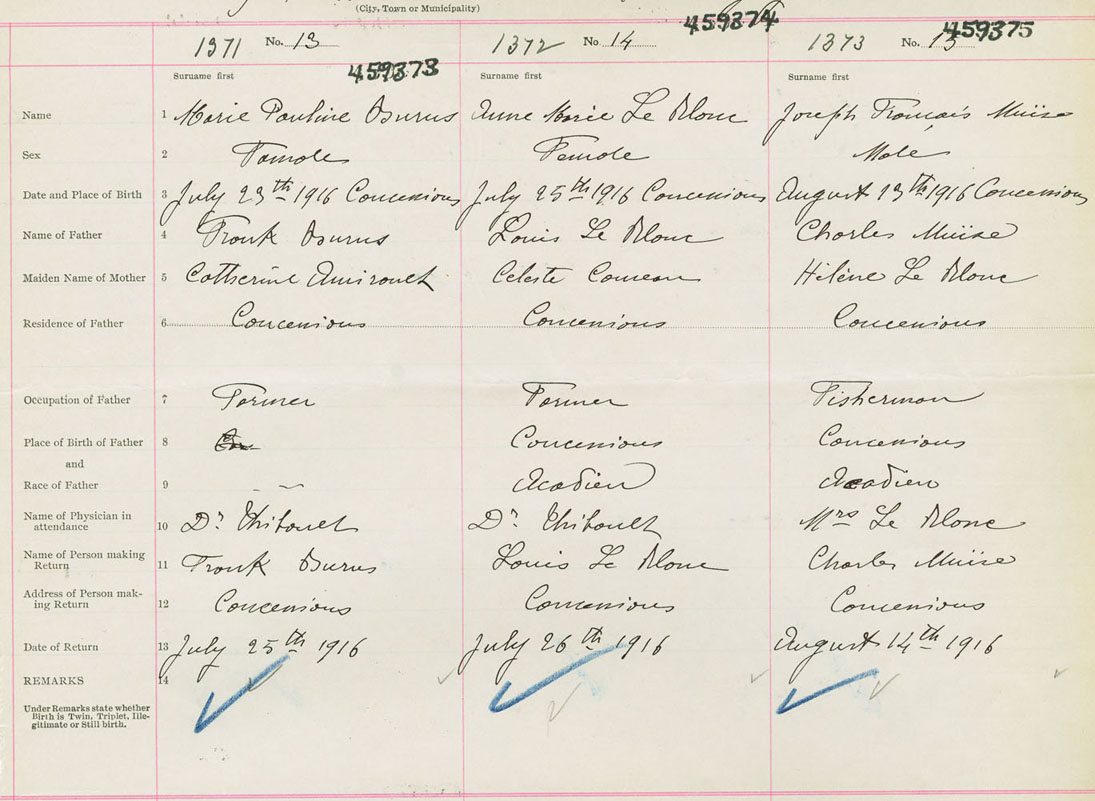 (City, Town or Municipality)
1371 No. 13 459373
1372 No 14 459374
1373 No. 15 459375
Surname first Surname first Surname first
Name 1 Marie Pauline Burns Anne Marie Le Blanc Joseph François Müise
Sex 2 Female Female Male
Date and Place of Birth 3 July 23th 1916 Concessions July 25th 1916 Concessions August 13th 1916 Concessions
Name of Father 4 Frank Burns Louis Le Blanc Charles Müise
Maiden Name of Mother 5 Cattherine Amirault Celeste Comeau Hélène Le Blanc
Residence of Father 6 Concessions Concessions Concessions
Occupation of Father 7 Farmer Farmer Fisherman
Place of Birth of Father 8 Concessions Concessions
and
Race of Father 9 Acadien Acadien
Name of Physician in
attendance 10 Dr Thibault Dr Thibault Mrs Le Blanc
Name of Person making
Return 11 Frank Burns Louis Le Blanc Charles Müise
Address of Person mak-
ing Return 12 Concessions Concessions Concessions
Date of Return 13 July 25th 1916 July 26th 1916 August 14th 1916
REMARKS 14
Under Remarks state whether
Birth is Twin, Triplet, Ille-
gitimate or Still birth.